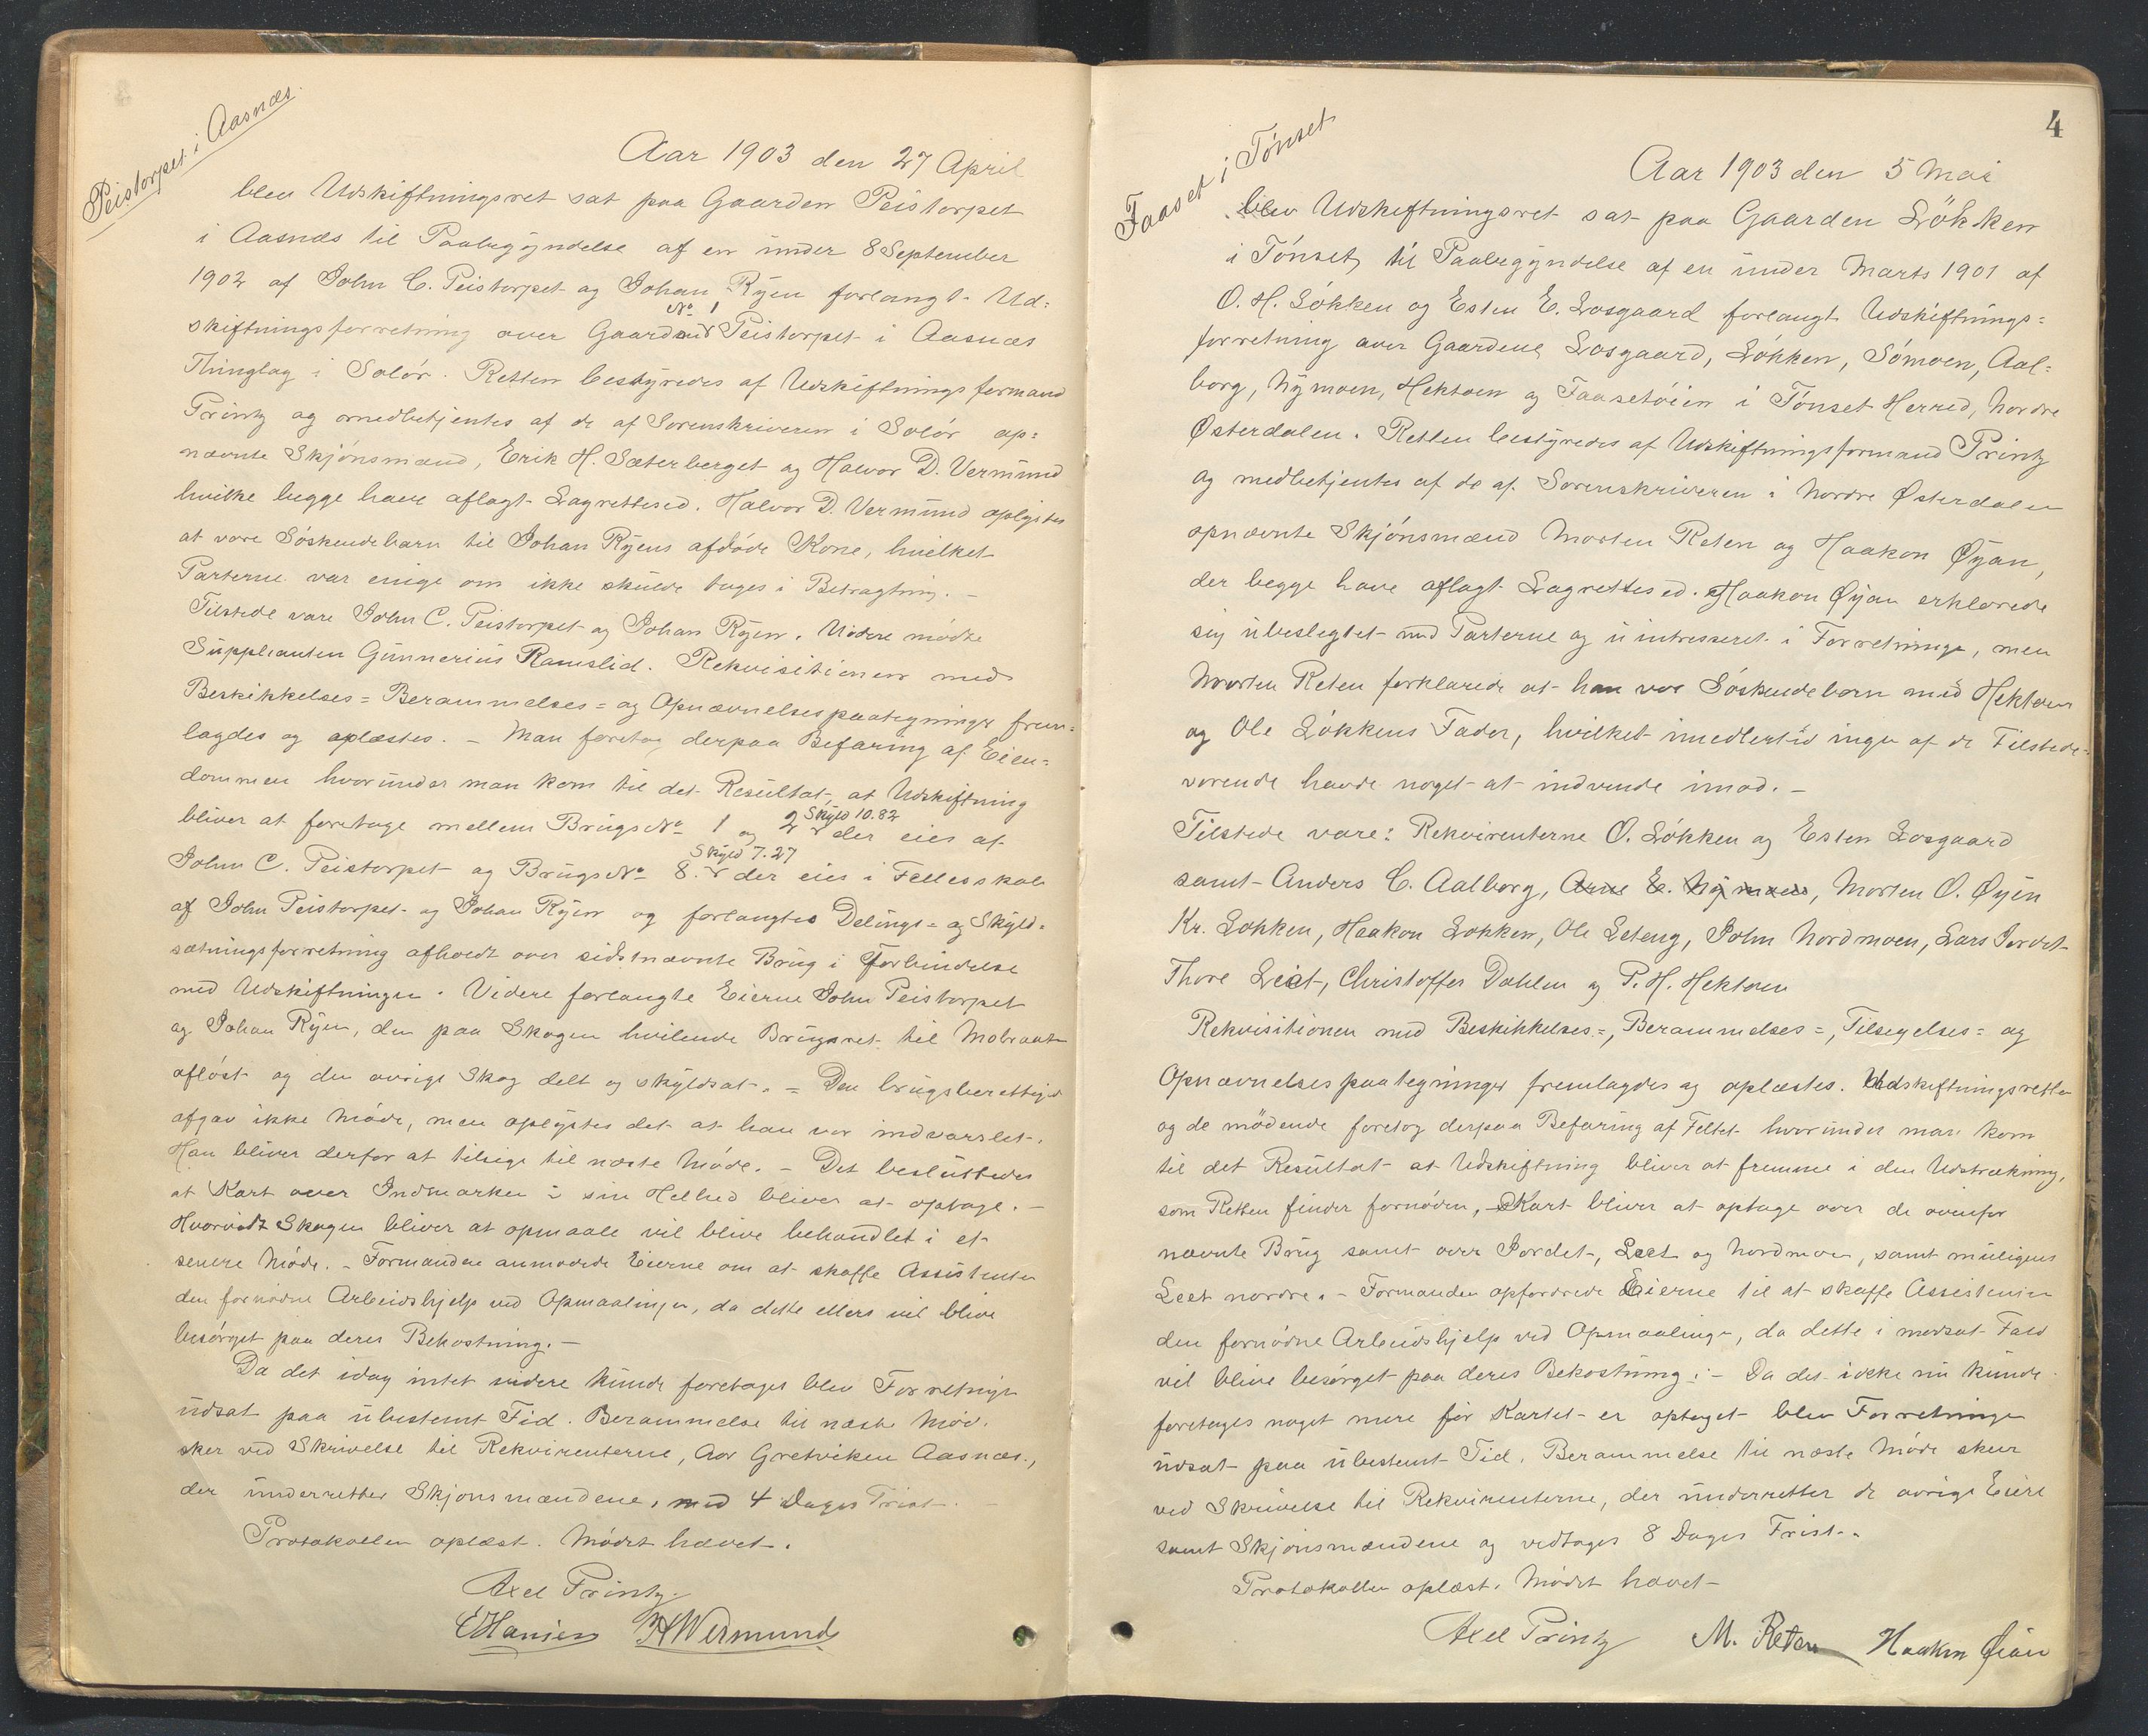 Peistorpet i Aasnæs.
Aar 1903 den 27 April
blev Udskiftningsret sat paa Gaarden Peistorpet
i Aasnæs til Paabegyndelse af en under 8 September
1902 af John C. Peistorpet og Johan Ryen forlangt Ud=
skiftningsforretning over Gaardend No 1 Peistorpet i Aasnæs
Thinglag i Solör. Retten bestyredes af Udskiftningsformand
Printz og medbetjentes af de af Sorenskriveren i Solör op=
nævnte Skjönsmænd, Erik H. Sæterberget og Halvor D. Vermund
hvilke begge have aflagt Lagrettesed. Halvor D. Vermund oplystes
at være Söskendebarn til Johan Ryens afdöde Kone, hvilket
Parterne var enige om ikke skulde tages i Betragtning. –
Tilstede vare John C. Peistorpet og Johan Ryen. Videre mödte
Suppleanten Gunnerius Ramslid. Rekvisitionen med
Beskikkelses= Berammelses= og Opnævnelsespaategninger frem=
lagdes og oplæstes. – Man foretog derpaa Befaring af Eien=
dommen hvorunder man kom til det Resultat at Udskiftning
bliver at foretage mellem Brugs No 1 og 2 Skyld 10.82 der eies af
John C. Peistorpet og Brugs No 8. Skyld 7.27 der eies i Fellesskab
af John Peistorpet og Johan Ryen og forlangtes Delings= og Skyld=
sætningsforretning afholdt over sidstnævnte Brug i Forbindelse
med Udskiftningen. Videre forlangte Eierne John Peistorpet
og Johan Ryen, den paa Skogen hvilende Brugsret til Mobraaten
aflöst og den övrige Skog delt og skyldsat. – Den brugsberettigede
afgav ikke Möde, men oplystes det at han var indvarslet.
Han bliver derfor at tilsige til næste Möde. – Det besluttedes
at Kart over Indmarken i sin Helhed bliver at optage. –
Hvorvidt Skogen bliver at opmaale vil blive behandlet i et
senere Möde. – Formanden anmodede Eierne om at skaffe Assistenten
den fornödne Arbeidshjelp ved Opmaalingen, da dette ellers vil blive
besörget paa deres Bekostning. –
Da det idag intet videre kunde foretages blev Forretningen
udsat paa ubestemt Tid. Berammelse til næste Möde
sker ved Skrivelse til Rekvirenterne, Adr Gretviken Aasnæs.,
der underretter Skjönsmændene, med 4 Dages Frist. –
Protokollen oplæst. Mödet hævet.
Axel Printz.
EHansen H Wermund
4
Faaset i Tönset
Aar 1903 den 5 Mai
blev Udskiftningsret sat paa Gaarden Lökken
i Tönset, til Paabegyndelse af en under Marts 1901 af
O. H. Lökken og Esten E. Losgaard forlangt Udskiftnings=
forretning over Gaardene Losgaard, Lökken, Sömoen, Aal=
borg, Nymoen, Hektoen og Faasetöien i Tönset Herred, Nordre
Østerdalen. Retten bestyredes af Udskiftningsformand Printz
og medbetjentes af de af Sorenskriveren i Nordre Østerdalen
opnævnte Skjönsmænd Morten Reten og Haakon Øyan,
der begge have aflagt Lagrettesed. Haakon Øyan erklærede
sig ubeslegtet med Parterne og uintresseret i Forretningen, men
Morten Reten forklarede at han var Söskendebarn med Hektoen
og Ole Lökkens Fader, hvilket imedlertid ingen af de Tilstede=
værende havde noget at indvende imod. –
Tilstede vare: Rekvirenterne O. Lökken og Esten Losgaard
samt Anders C. Aalborg, Arne E. Nymoen, Morten O. Øyen
Kr. Lökken, Haakon Lökken, Ole Leteng, John Nordmoen, Lars Jordet
Thore Leet, Christoffer Dahlen og P. H. Hektoen
Rekvisitionen med Beskikkelses=, Berammelses=, Tilsegelses= og
Opnævnelsespaategninger fremlagdes og oplæstes. Udskiftningsretten
og de mödende foretog derpaa Befaring af Feltet hvorunder man kom
til det Resultat at Udskiftning bliver at fremme i den Udstrækning,
som Retten finder fornöden, – Kart bliver at optage over de ovenfor
nævnte Brug samt over Jordet, Leet og Nordmoen, samt muligens
Leet nordre. – Formanden opfordrede Eierne til at skaffe Assistenten
den fornödne Arbeidshjelp ved Opmaalingen, da dette i modsat Fald
vil blive besörget paa deres Bekostning. – Da det ikke nu kunde
foretages noget mere för Kartet er optaget blev Forretningen
udsat paa ubestemt Tid. Berammelse til næste Möde skeer
ved Skrivelse til Rekvirenterne, der underretter de övrige Eiere
samt Skjönsmændene og vedtages 8 Dages Frist. –
Protokollen oplæst. Mödet hævet –
Axel Printz M. Reten Haakon Øian